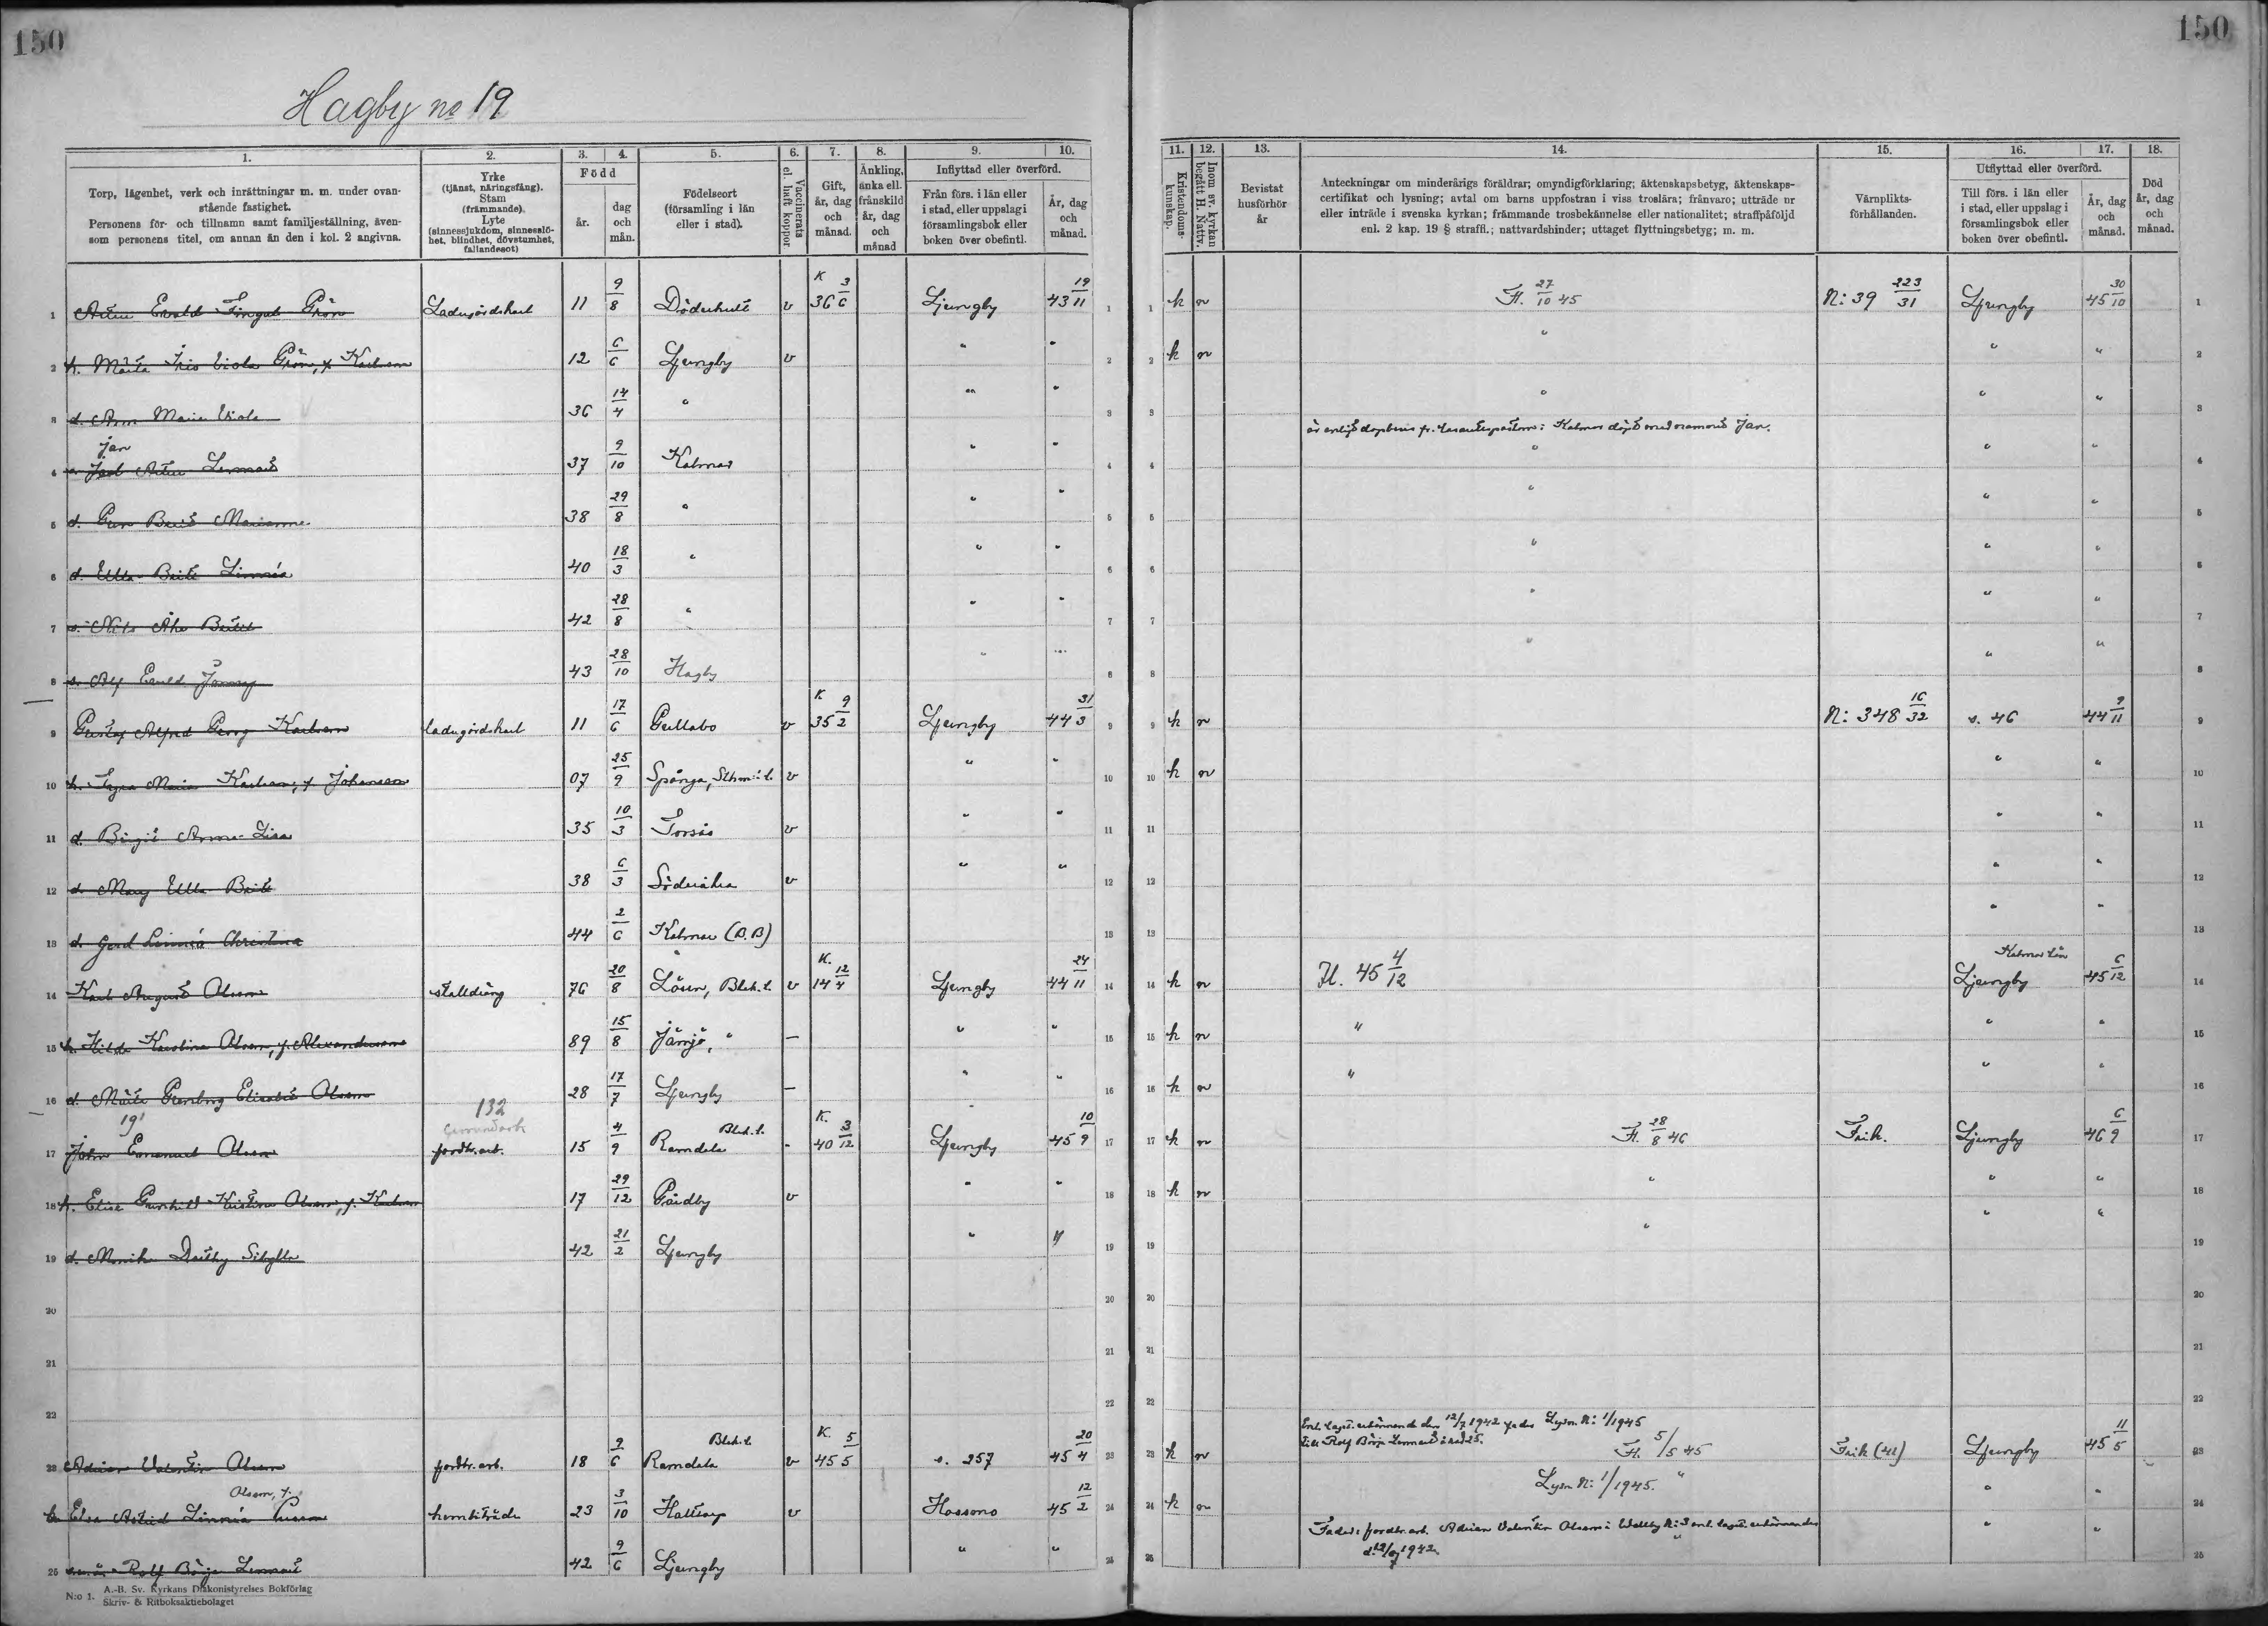 150
150
Hagby no 19
1.
Torp, lägenhet, verk och inrättningar m. m. under ovan-
stående fastighet.
Personens för- och tillnamn samt familjeställning, även-
som personens titel, om annan än den i kol. 2 angivna.
2.
Yrke
(tjänst, näringsfång).
Stam
(främmande).
Lyte
(sinnessjukdom, sinnesslö-
het, blindhet, dövstumhet,
fallandesot)
3. 4.
Född
år.
dag
och
mån.
5.
Födelseort
(församling i län
eller i stad).
6.
Vaccinerats
el. haft koppor.
7.
Gift,
år, dag
och
månad.
8.
Änkling,
änka ell.
frånskild
år, dag
och
månad
9. 10.
Inflyttad eller överförd.
Från förs. i län eller
i stad, eller uppslag i
församlingsbok eller
boken över obefintl.
År, dag
och
månad.
11.
Kristendoms-
kunskap.
12.
Inom sv. kyrkan
begått H. Nattv.
13.
Bevistat
husförhör
år
14.
Anteckningar om minderårigs föräldrar; omyndigförklaring; äktenskapsbetyg, äktenskaps-
certifikat och lysning; avtal om barns uppfostran i viss troslära; frånvaro; utträde ur
eller inträde i svenska kyrkan; främmande trosbekännelse eller nationalitet; straffpåföljd
enl. 2 kap. 19 § straffl.; nattvardshinder; uttaget flyttningsbetyg; m. m.
15.
Värnplikts-
förhållanden.
16. 17.
Utflyttad eller överförd.
Till förs. i län eller
i stad, eller uppslag i
församlingsbok eller
boken över obefintl.
År, dag
och
månad.
18.
Död
år, dag
och
månad.
1 Grön Ladugårdskarl 11 9/8 Döderhult v K 36 3/6 Ljungby 43 19/11 1 1 k n Fl. 27/10 45 N: 39 223/31 Ljungby 45 30/10 1
2 h. Märta Iris Viola Grön, f. Karlsson 12 6/6 Ljungby v " " 2 2 k n " " " 2
3 d. Maria Viola 36 14/4 " " " 3 3 " " " 3
Jan
är enligt dopbevis fr. i Kalmar döpt med namnet Jan.
4 Lennart 37 9/10 Kalmar " " 4 4 " " " 4
5 d. Gun Berit Marianne 38 29/8 " " " 5 5 " " " 5
6 d. Ulla-Britt Linnéa 40 18/3 " " " 6 6 " " " 6
7 s. Nils Åke Bertil 42 28/8 " " " 7 7 " " " 7
8 s. Alf 43 28/10 Hagby " " 8 8 " " " 8
9 Gustaf Alfred Georg Karlsson ladugårdskarl 11 17/6 Gullabo v K 35 9/2 Ljungby 44 31/3 9 9 k n N: 348 16/32 s. 46 44 9/11 9
10 h. Maria Karlsson, f. Johansson 07 25/9 Spånga, Sthm:s l. v " " 10 10 k n " " 10
11 d. Birgit Anna-Lisa 35 10/3 Torsås v " " 11 11 " " 11
12 d. Mary Ulla-Britt 38 6/3 Söderåkra v " " 12 12 " " 12
13 d. Gerd Linnéa Christina 44 2/6 Kalmar (B.B) 13 13 " " 13
14 Karl August Olsson stalldräng 76 20/8 Lösen, Blek. l. v K. 14 12/4 Ljungby 44 24/11 14 14 k n Fl. 45 4/12 Kalmar län Ljungby 45 6/12 14
15 h. Hilda Karolina Olsson, f. Alexandersson 89 15/8 Jämjö, " — " " 15 15 k n " " " 15
16 d. Märta Elisabet Olsson 28 17/7 Ljungby — " " 16 16 k n " " " 16
191 132
17 John Emanuel Olsson jordbr.arb. 15 4/9 Ramdala Blek. l. - K. 40 3/12 Ljungby 45 10/9 17 17 k n Fl. 28/8 46 Frik. Ljungby 46 6/9 17
18 h. Elisa Gunhild Kristina Olsson, f. Karlsson 17 29/12 Gårdby v " " 18 18 k n " " " 18
19 d. Monika Sibylla 42 21/2 Ljungby " " 19 19 " " " 19
20 20 20 20
21 21 21 21
22 22 22 22
Enl. erkännande den 12/7 1942 fader Lysn. N: 1/1945
till Rolf Börje Lennart å rad 25.
23 Adrian Valentin Olsson jordbr.arb. 18 9/6 Ramdala Blek. l. v K. 45 5/5 s. 257 45 20/4 23 23 k n Fl. 5/5 45 Frik (42) Ljungby 45 11/5 23
Olsson, f.
24 h. Elsa Astrid Linnéa hembiträde 23 3/10 Halltorp v Hossmo 45 12/2 24 24 k n Lysn N: 1/1945. " " " 24
Fader: jordbr.arb. Adrian Valentin Olsson i N: 3 enl. erkännande
d. 12/7 1942
25 Rolf Börje Lennart 42 9/6 Ljungby " " 25 25 " " 25
N:o 1. A.-B. Sv. Kyrkans Diakonistyrelses Bokförlag
Skriv- & Ritboksaktiebolaget